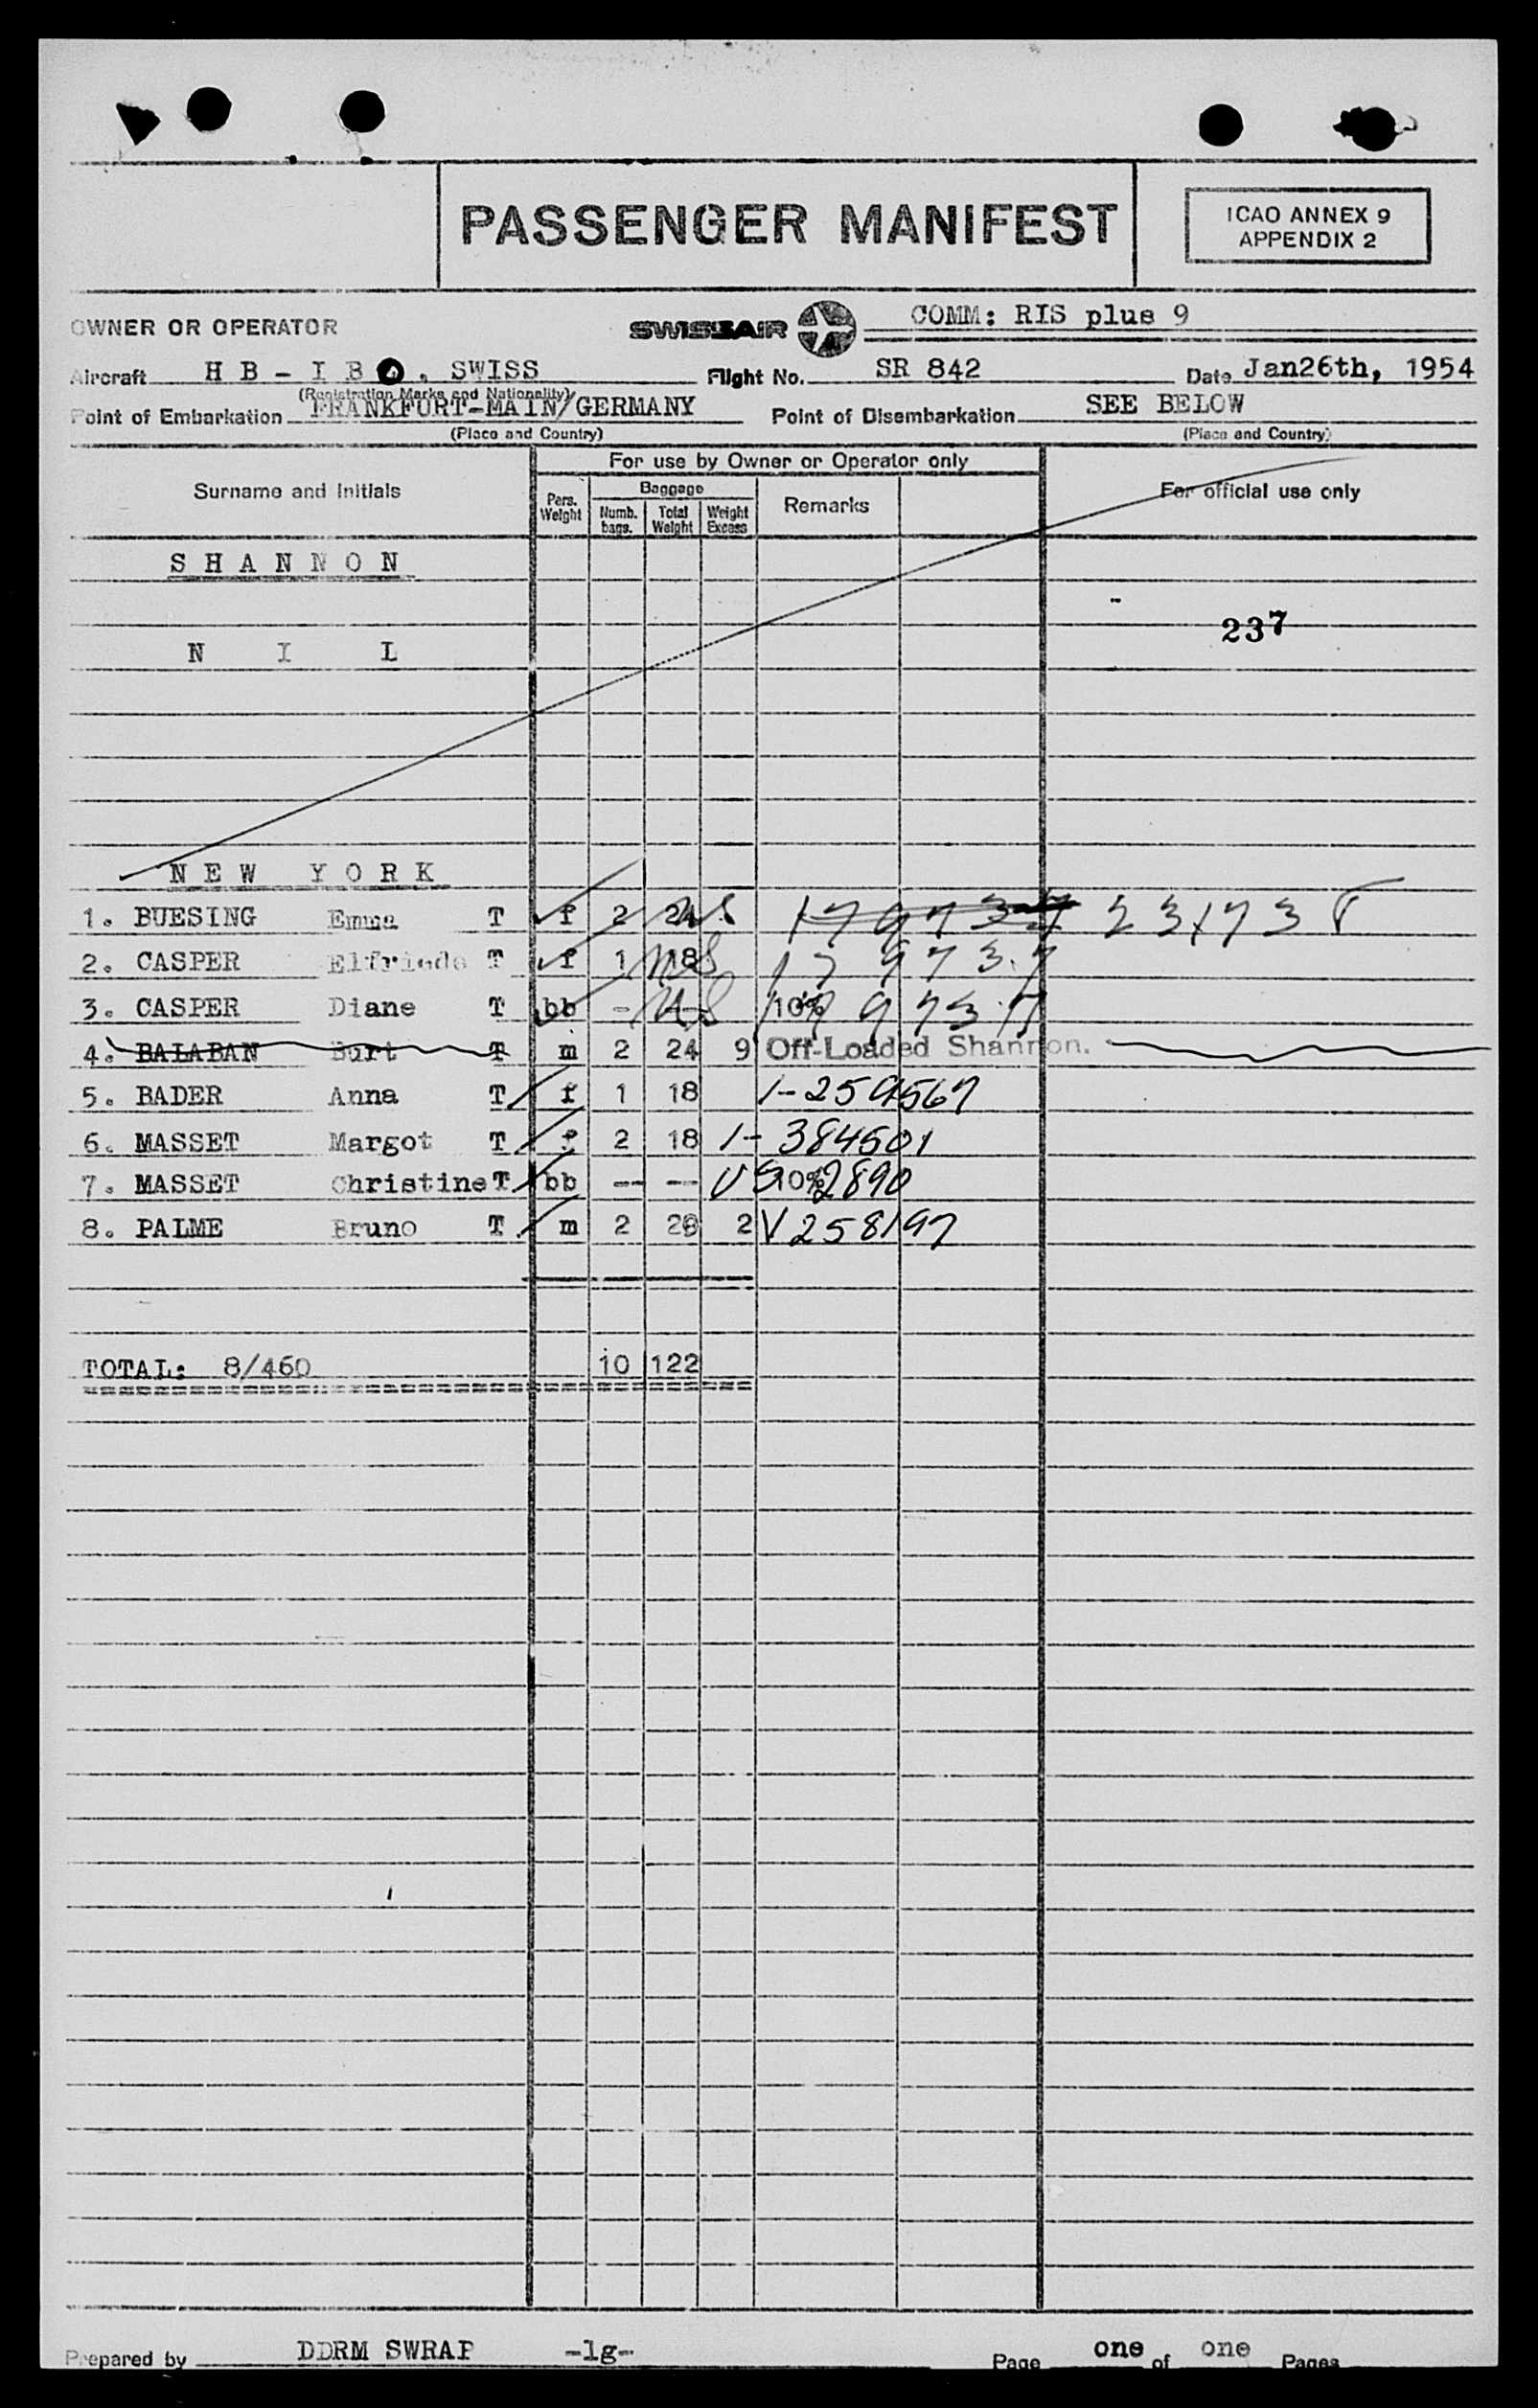 PASSENGER MANIFEST
ICAO ANNEX 9
APPENDIX 2
OWNER OR OPERATOR SWISSAIR COMM: RIS plus 9
Aircraft H B - I B , SWISS Flight No. SR 842 Date Jan26th, 1954
(Registration Marks and Nationality)
Point of Embarkation FRANKFURT-MAIN/GERMANY Point of Disembarkation SEE BELOW
(Place and Country) (Place and Country)
For use by Owner or Operator only
Surname and Initials Pers. Weight Baggage Numb. bags. Total Weight Weight Excess Remarks For official use only
S H A N N O N
237
N I L
N E W Y O R K
1. BUESING Emma T f 2 24 US 179737 231738
2. CASPER Elfriede T f 1 18 US 179737
3. CASPER Diane T bb - US 10% 179737
4. BALABAN Burt T m 2 24 9 Off-Loaded Shannon.
5. BADER Anna T f 1 18 I-259567
6. MASSET Margot T f 2 18 I-384501
7. MASSET Christine T bb -- -- US 10% 2890
8. PALME Bruno T m 2 20 2 V258197
TOTAL: 8/460 10 122
Prepared by DDRM SWRAP -lg- Page one of one Pages